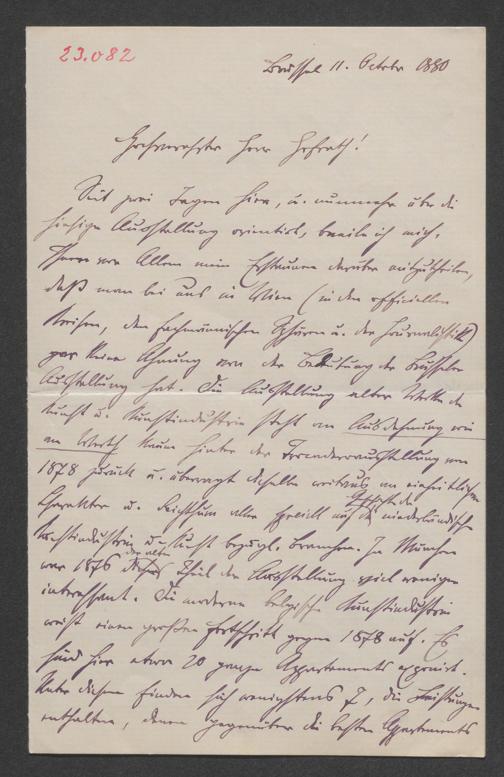 23.082
Brüssel 11. October 1880
Hochverehrter Herr Hofrath!
Seit zwei Tagen hier, u. nunmehr über die
hiesige Ausstellung orientirt, beeile ich mich,
Ihnen vor Allem mein Erstaunen darüber mitzutheilen,
daß man bei uns in Wien (in den officiellen
Kreisen, den fachmännischen Sphären u. der Journalistik)
gar keine Ahnung von der Bedeutung der Brüsseler
Ausstellung hat. Die Ausstellung alter Werke der
Kunst u. Kunstindustrie steht an Ausdehnung wie
an Werth kaum hinter der Trocaderoausstellung von
1878 zurück u. überragt dieselbe weitaus an einheitlichem
Charakter u. Reichthum aller speciell auf die niederländische
Kunstindustrie u. Kunst bezügl. Branchen. In München
war 1876 der alte Theil der Ausstellung viel weniger
interessant. Die moderne belgische Kunstindustrie
weist einen großen Fortschritt gegen 1878 auf. Es
sind hier etwa 20 ganze Appartements exponirt.
Unter diesen finden sich wenigstens 7, die Leistungen
enthalten, denen gegenüber die besten Appartements